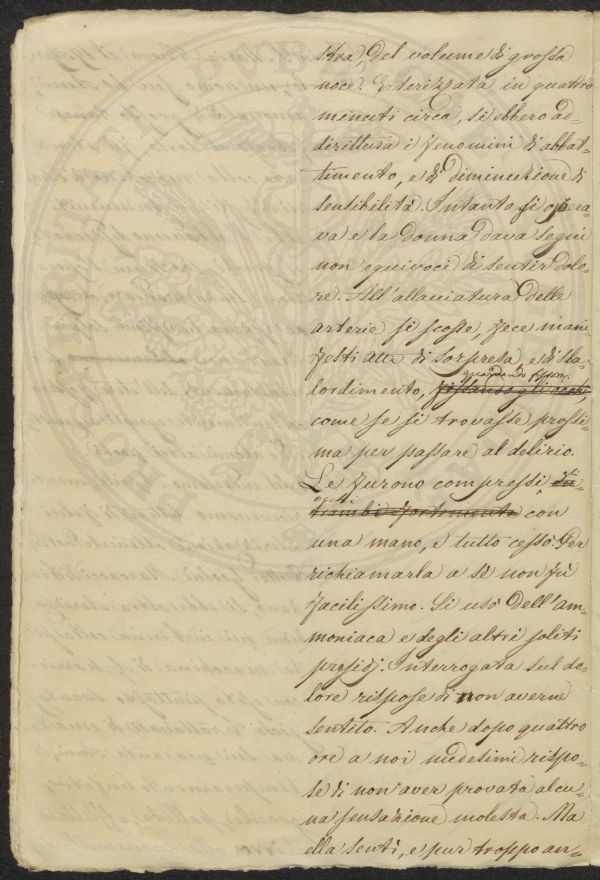 stra, del volume di grossa
noce. Eterizzata in quattro
minuti circa, si ebbero ad-
dirittura i fenomini di abbat-
timento, e di diminuzione di
sensibilità. Intanto si opera-
va e la donna dava segni
non equivoci di sentir dolo-
re. All'allacciatura delle
arterie si scosse, fece mani-
festi atti di sorpresa e di sba-
guardando fissam.
lordimento, fissando gli occhi,
come se si trovasse prossi-
ma per passare al delirio.
Le furono compressi,
trambi fortemente con
una mano, e tutto cessò. Per
richiamarla a sè non fù
facilissimo. Si usò dell'am-
moniaca e degli altri soliti
presidj. Interrogata sul do-
lore rispose di non averne
sentito. Anche dopo quattro
ore a noi medesimi rispo-
se di non aver provata alcu-
na sensazione molesta. Ma
ella sentì, e pur troppo an-